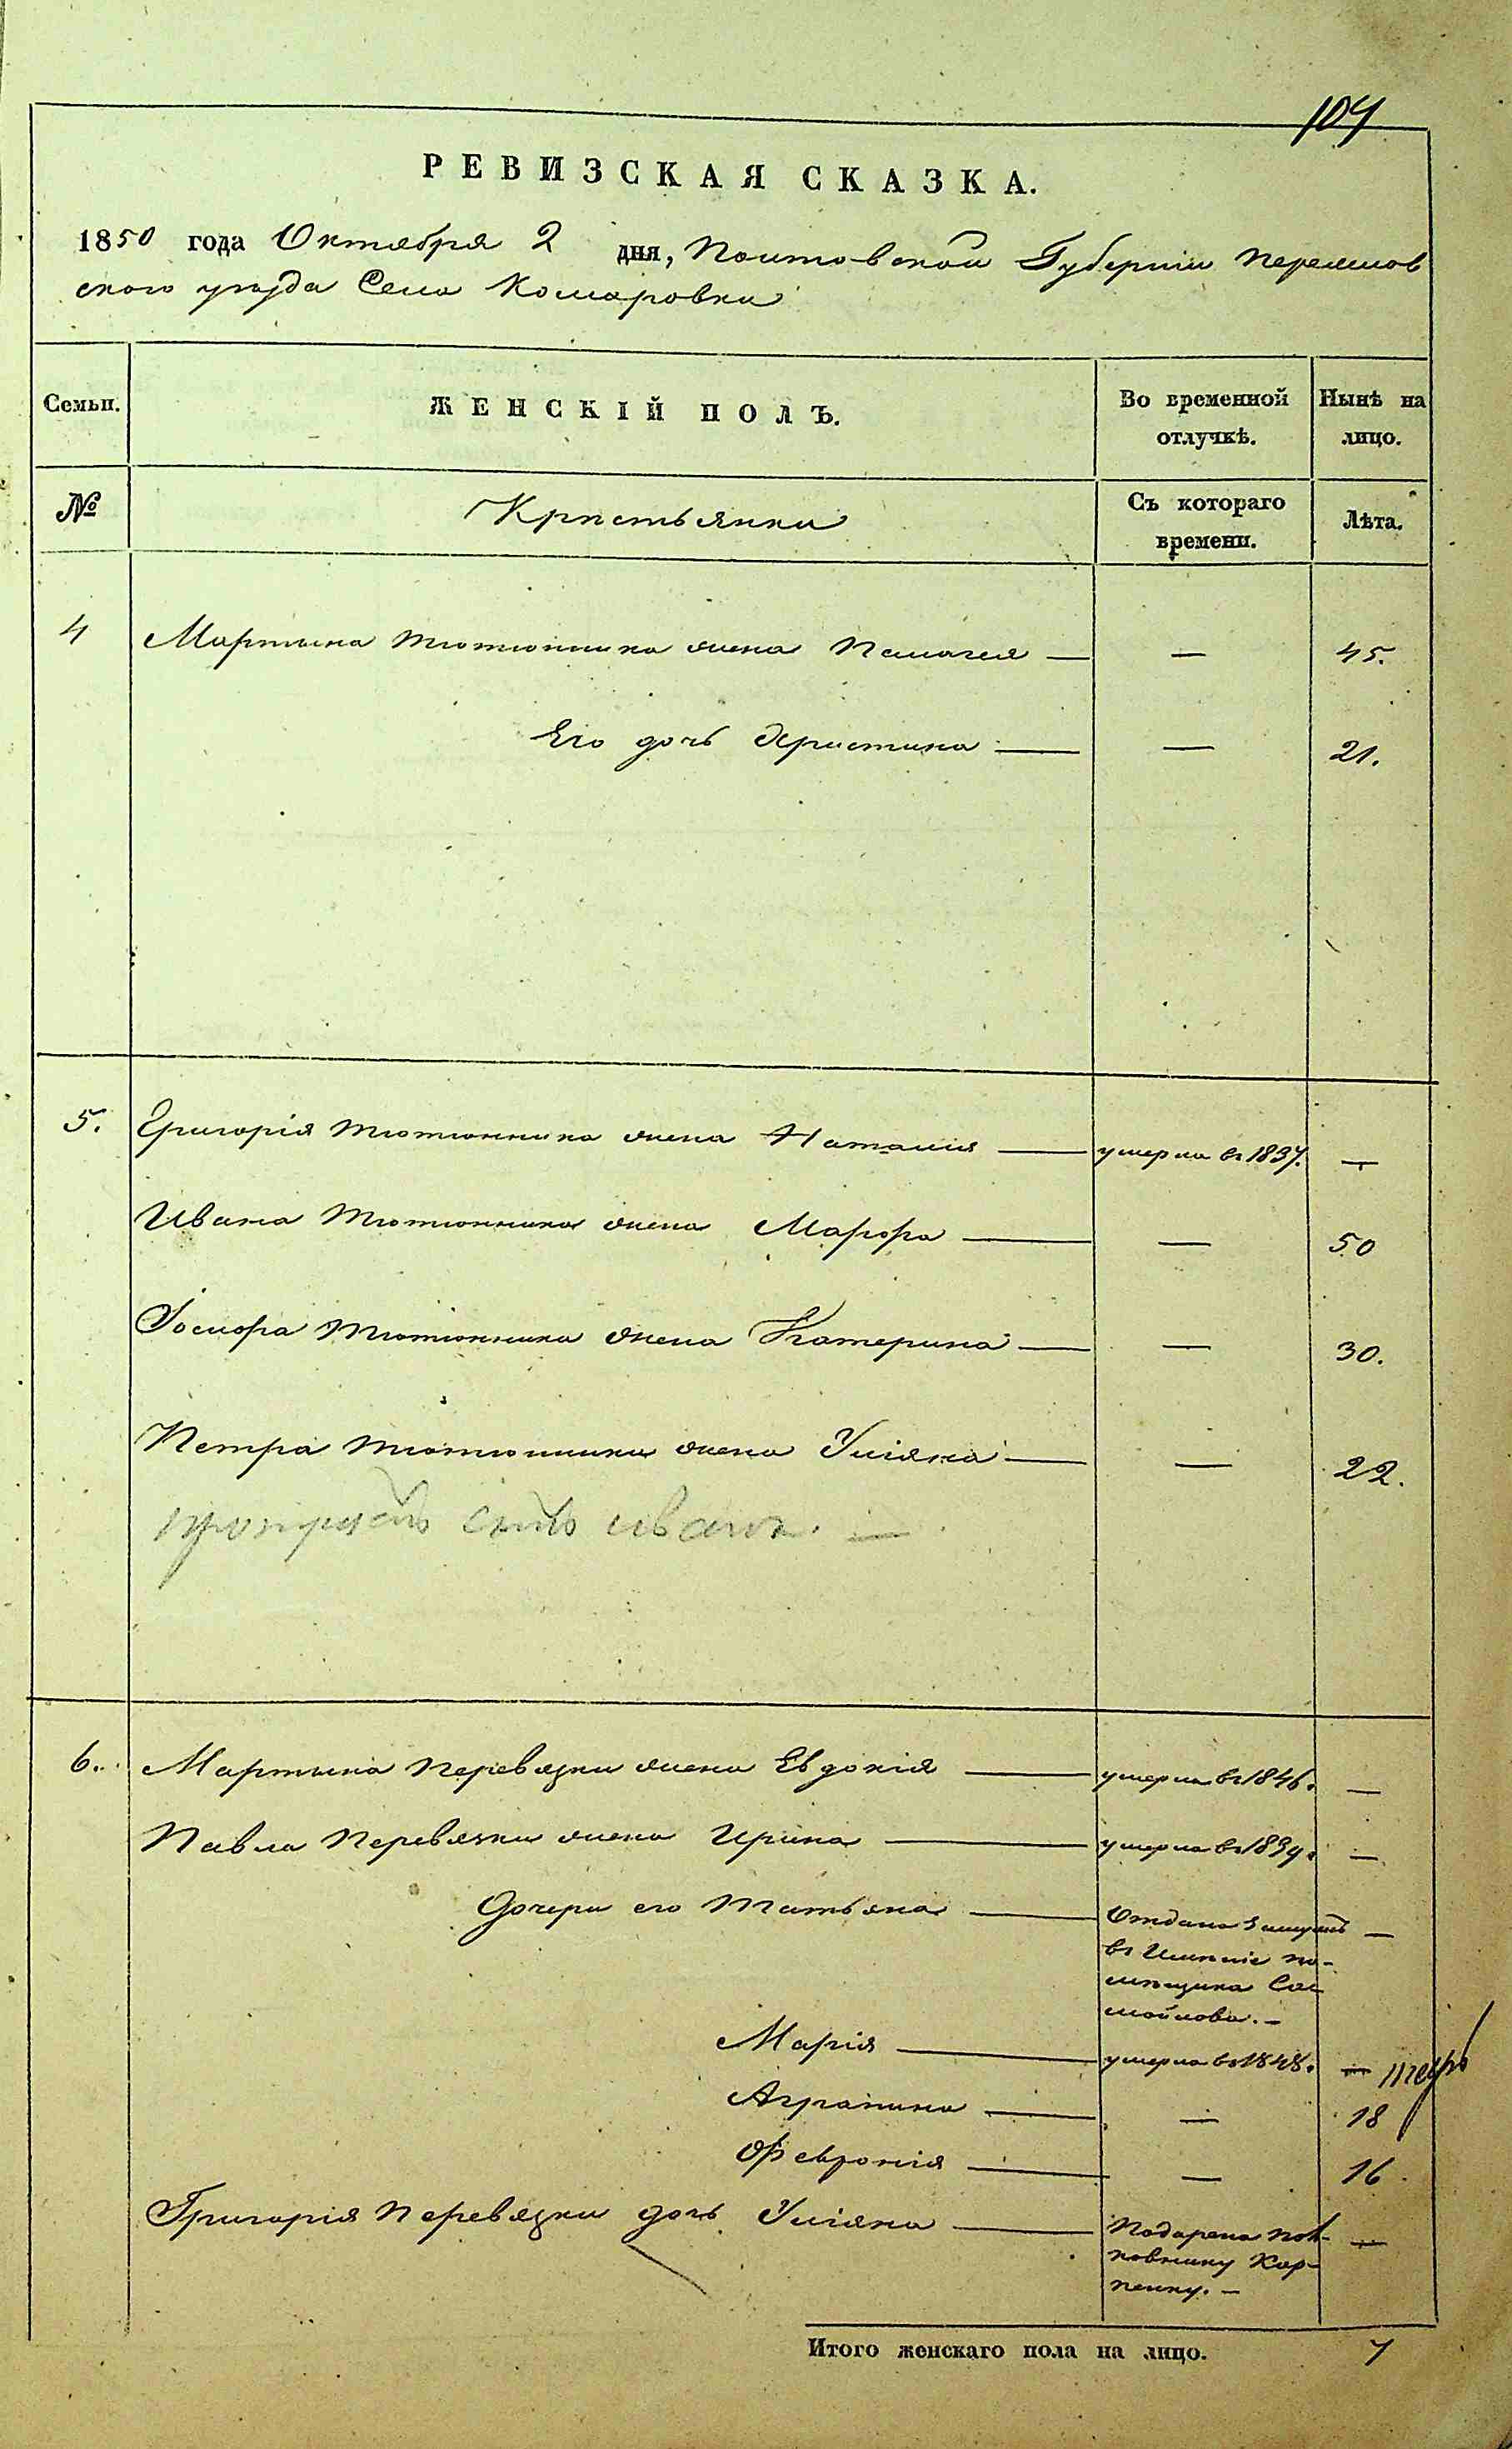 104
РЕВИЗСКАЯ СКАЗКА.
1850 года Октября 2 дня, Полтавской Губерніи Переяслов
ского уезда Села Комаровки
Семьи. ЖЕНСКІЙ ПОЛЪ. Во временной отлучкѣ. Нынѣ на лицо.
№ Крестьянки Съ котораго времени. Лѣта.
4 Мартына Тютюнника жена Пелагея — — 45.
Его дочь Христина — — 21.
5. Григорія Тютюнника жена Наталия — умерла въ 1837. —
Ивана Тютюнника жена Марфа — — 50
Іосифа Тютюнника жена Катерина — — 30.
Петра Тютюнника жена Уліяна — — 22.
сынъ иванъ. —
6. Мартына Перевязки жена Евдокія — умерла въ 1846. —
Павла Перевязки жена Ирина — умерла въ 1839. —
Дочери его Татьяна — Отдана замужъ —
въ Имѣніе по-
мѣщика Са-
мойлова. —
Марія — умерла въ 1848. —
Аграпина — — 18
Февронія — — 16
Григорія Перевязки дочь Уліяна — Подарена пол- —
ковнику Кар-
пенку. —
Итого женскаго пола на лицо. 7